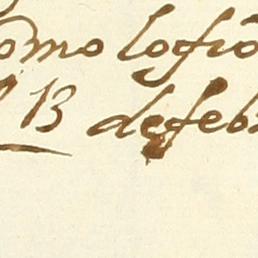 como lo fio
13 defeb